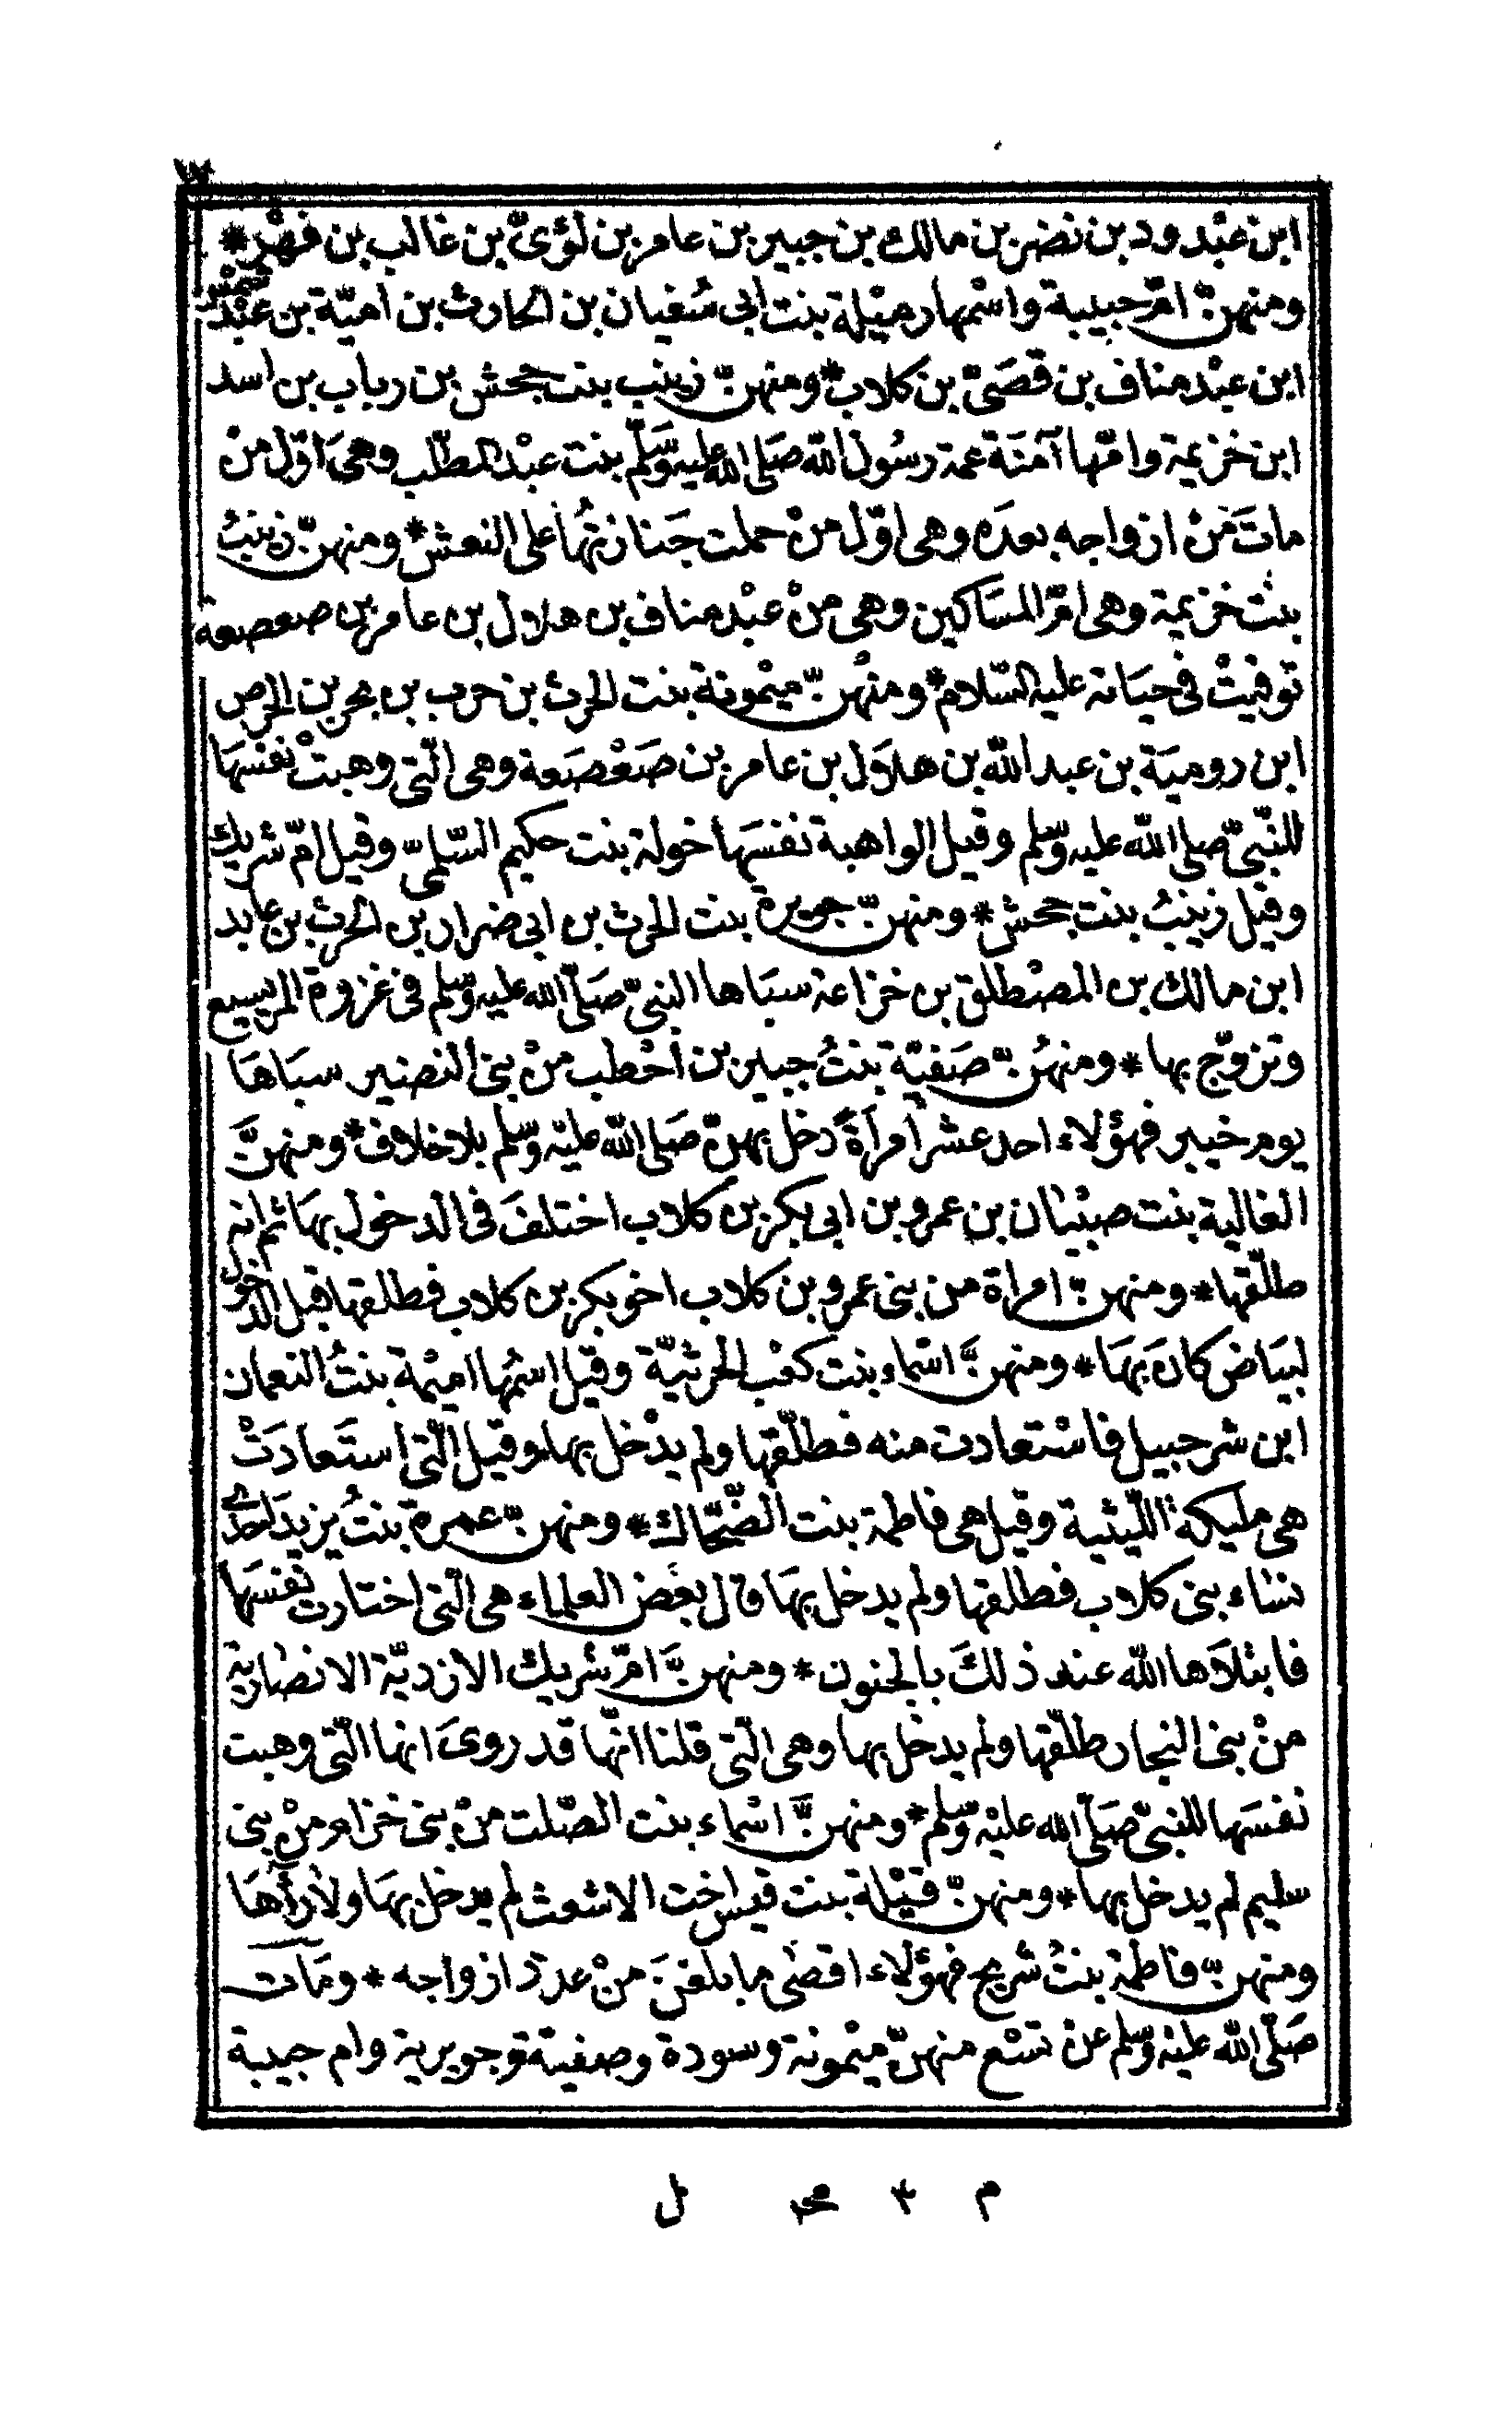 ١٧
ابن عبْد ود بن نضر بن مالك بن جبير بن عامر بن لؤىّ بن غالب بن فهْر *
ومنهنّ امّ حبيبة واسْمها رميْلة بنت ابى سُفيان بن الحارث بن اميّة بن عبْد شمْس
ابن عبْد مناف بن قصَىّ بن كلاب * ومنهنّ زينب بنت جحش بن رباب بن اسد
ابن خزيمة وامّها آمَنَة عمة رسُول الله صَلى الله عليه وَسَلّم بنت عبْد المطّلب وهىَ اوّل منْ
ماتَ منْ ازواجه بعدَه وهى اوّل منْ حملت جَنازتهُا على النعش * ومنهنّ زينبُ
بنت خزيمة وهى امّ المسَاكين وهى منْ عبْد مناف بن هلال بن عامر بن صعصعة
توفيتْ فى حيَاته عليه السّلام * ومنهُنّ ميْمونة بنت الحرث بن حرب بن بحر بن الحرص
ابن روميَة بن عبد الله بن هلاَل بن عامر بن صَعْصَعة وهى الّتى وهبتْ نفسَهَا
للنّبىّ صلى الله عليه وسّلم وقيل الواهبة نفسَها خولة بنت حكيم السّلمىّ وقيل امّ شريك
وقيل زينبُ بنت جحش * ومنهنّ جويرة بنت الحرث بن ابى ضرار بن الحرث بن عابد
ابن مالك بن المصْطلق بن خزاعة سبَاها النبىّ صَلّى الله عليه وسّلم فى غزوة المريسيع
وتزوّج بها * ومنهُنّ صَفيّة بنتُ جبير بن احْطب منْ بنى النضير سبَاهَا
يوم خيبر فهؤلاء احد عشر امرأةً دخل بهنّ صَلى الله عليْه وسّلم بلا خلاف * ومنهنَّ
الغالية بنت صبْيان بن عمرو بن ابى بكر بن كلاب اختلفَ فى الدخول بهَا ثم انه
طلّقها * ومنهنّ امراة من بنى عمرو بن كلاب اخو بكر بن كلاب فطلقها قبل الدخول
لبيَاض كانَ بهَا * ومنهنَّ اسْماء بنت كعْب الحرثيّة وقيل اسمُها اميْمة بنتُ النعمان
ابن شرحبيل فاسْتعادت منه فطلّقها ولم يدْخل بها وقيل الّتى استَعادَتْ
هى مليكة اللّيثية وقيل هى فاطمة بنت الضّحّاك * ومنهنّ عمرة بنتُ يزيد احدى
نساء بنى كلاب فطلقها ولم يدخل بهَا قال بعض العلماء هى الّتى اختارت نفسَها
فابتلاَها الله عند ذلكَ بالجنون * ومنهنَّ امّ شريك الازديّة الانصارية
منْ بنى النجار طلّقها ولم يدخل بها وهى الّتى قلنا انّها قد روىَ انها الّتى وهبت
نفسَها للنبىّ صَلّى الله عليْه وسّلم * ومنهنَّ اسْماء بنت الصّلت منْ بنى خزام منْ بنى
سليم لم يدخل بها * ومنهنّ قتيْلة بنت قيس اخت الاشعث لم يدخل بهَا ولا رأهَا
ومنهنّ فاطمة بنتُ شريح فهؤلاء اقصٰى ما بلغنَ منْ عدد ازواجه * ومَات
صَلّى الله عليْه وسّلم عنْ تسْع منهنّ ميْمونة وسودة وصفية وجويرية وام حبيبة
م ٣ محمد ل